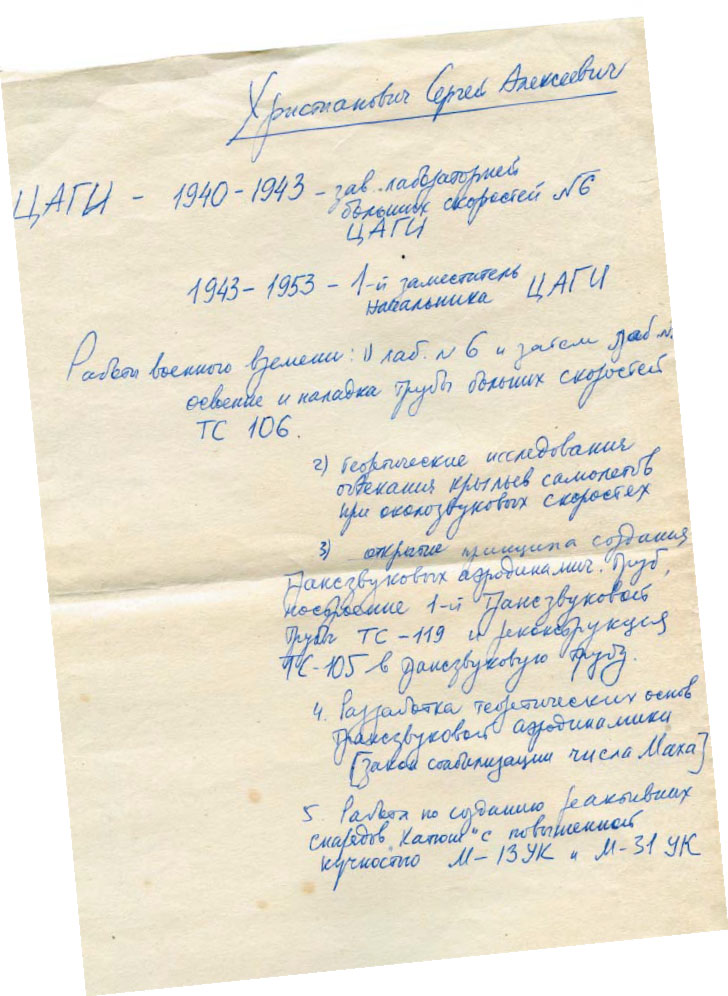 Христианович Сергей Алексеевич
ЦАГИ - 1940-1943 - зав. лабораторией
больших скоростей №6
ЦАГИ
1943-1953 - 1-й заместитель
начальника ЦАГИ
Работы военного времени: 1) лаб. №6 и затем лаб. №
освоение и наладка трубы больших скоростей
ТС 106.
2) теоретические исследования
обтекания крыльев самолетов
при околозвуковых скоростях
3) открытие принципа создания
трансзвуковых аэродинамич. труб,
построение 1-й трансзвуковой
трубы ТС-119 и реконструкция
ТС-105 в трансзвуковую трубу.
4. Разработка теоретических основ
трансзвуковой аэродинамики
[закон стабилизации числа Маха]
5. Работа по созданию реактивных
снарядов "Катюш" с повышенной
кучностью М-13УК и М-31 УК